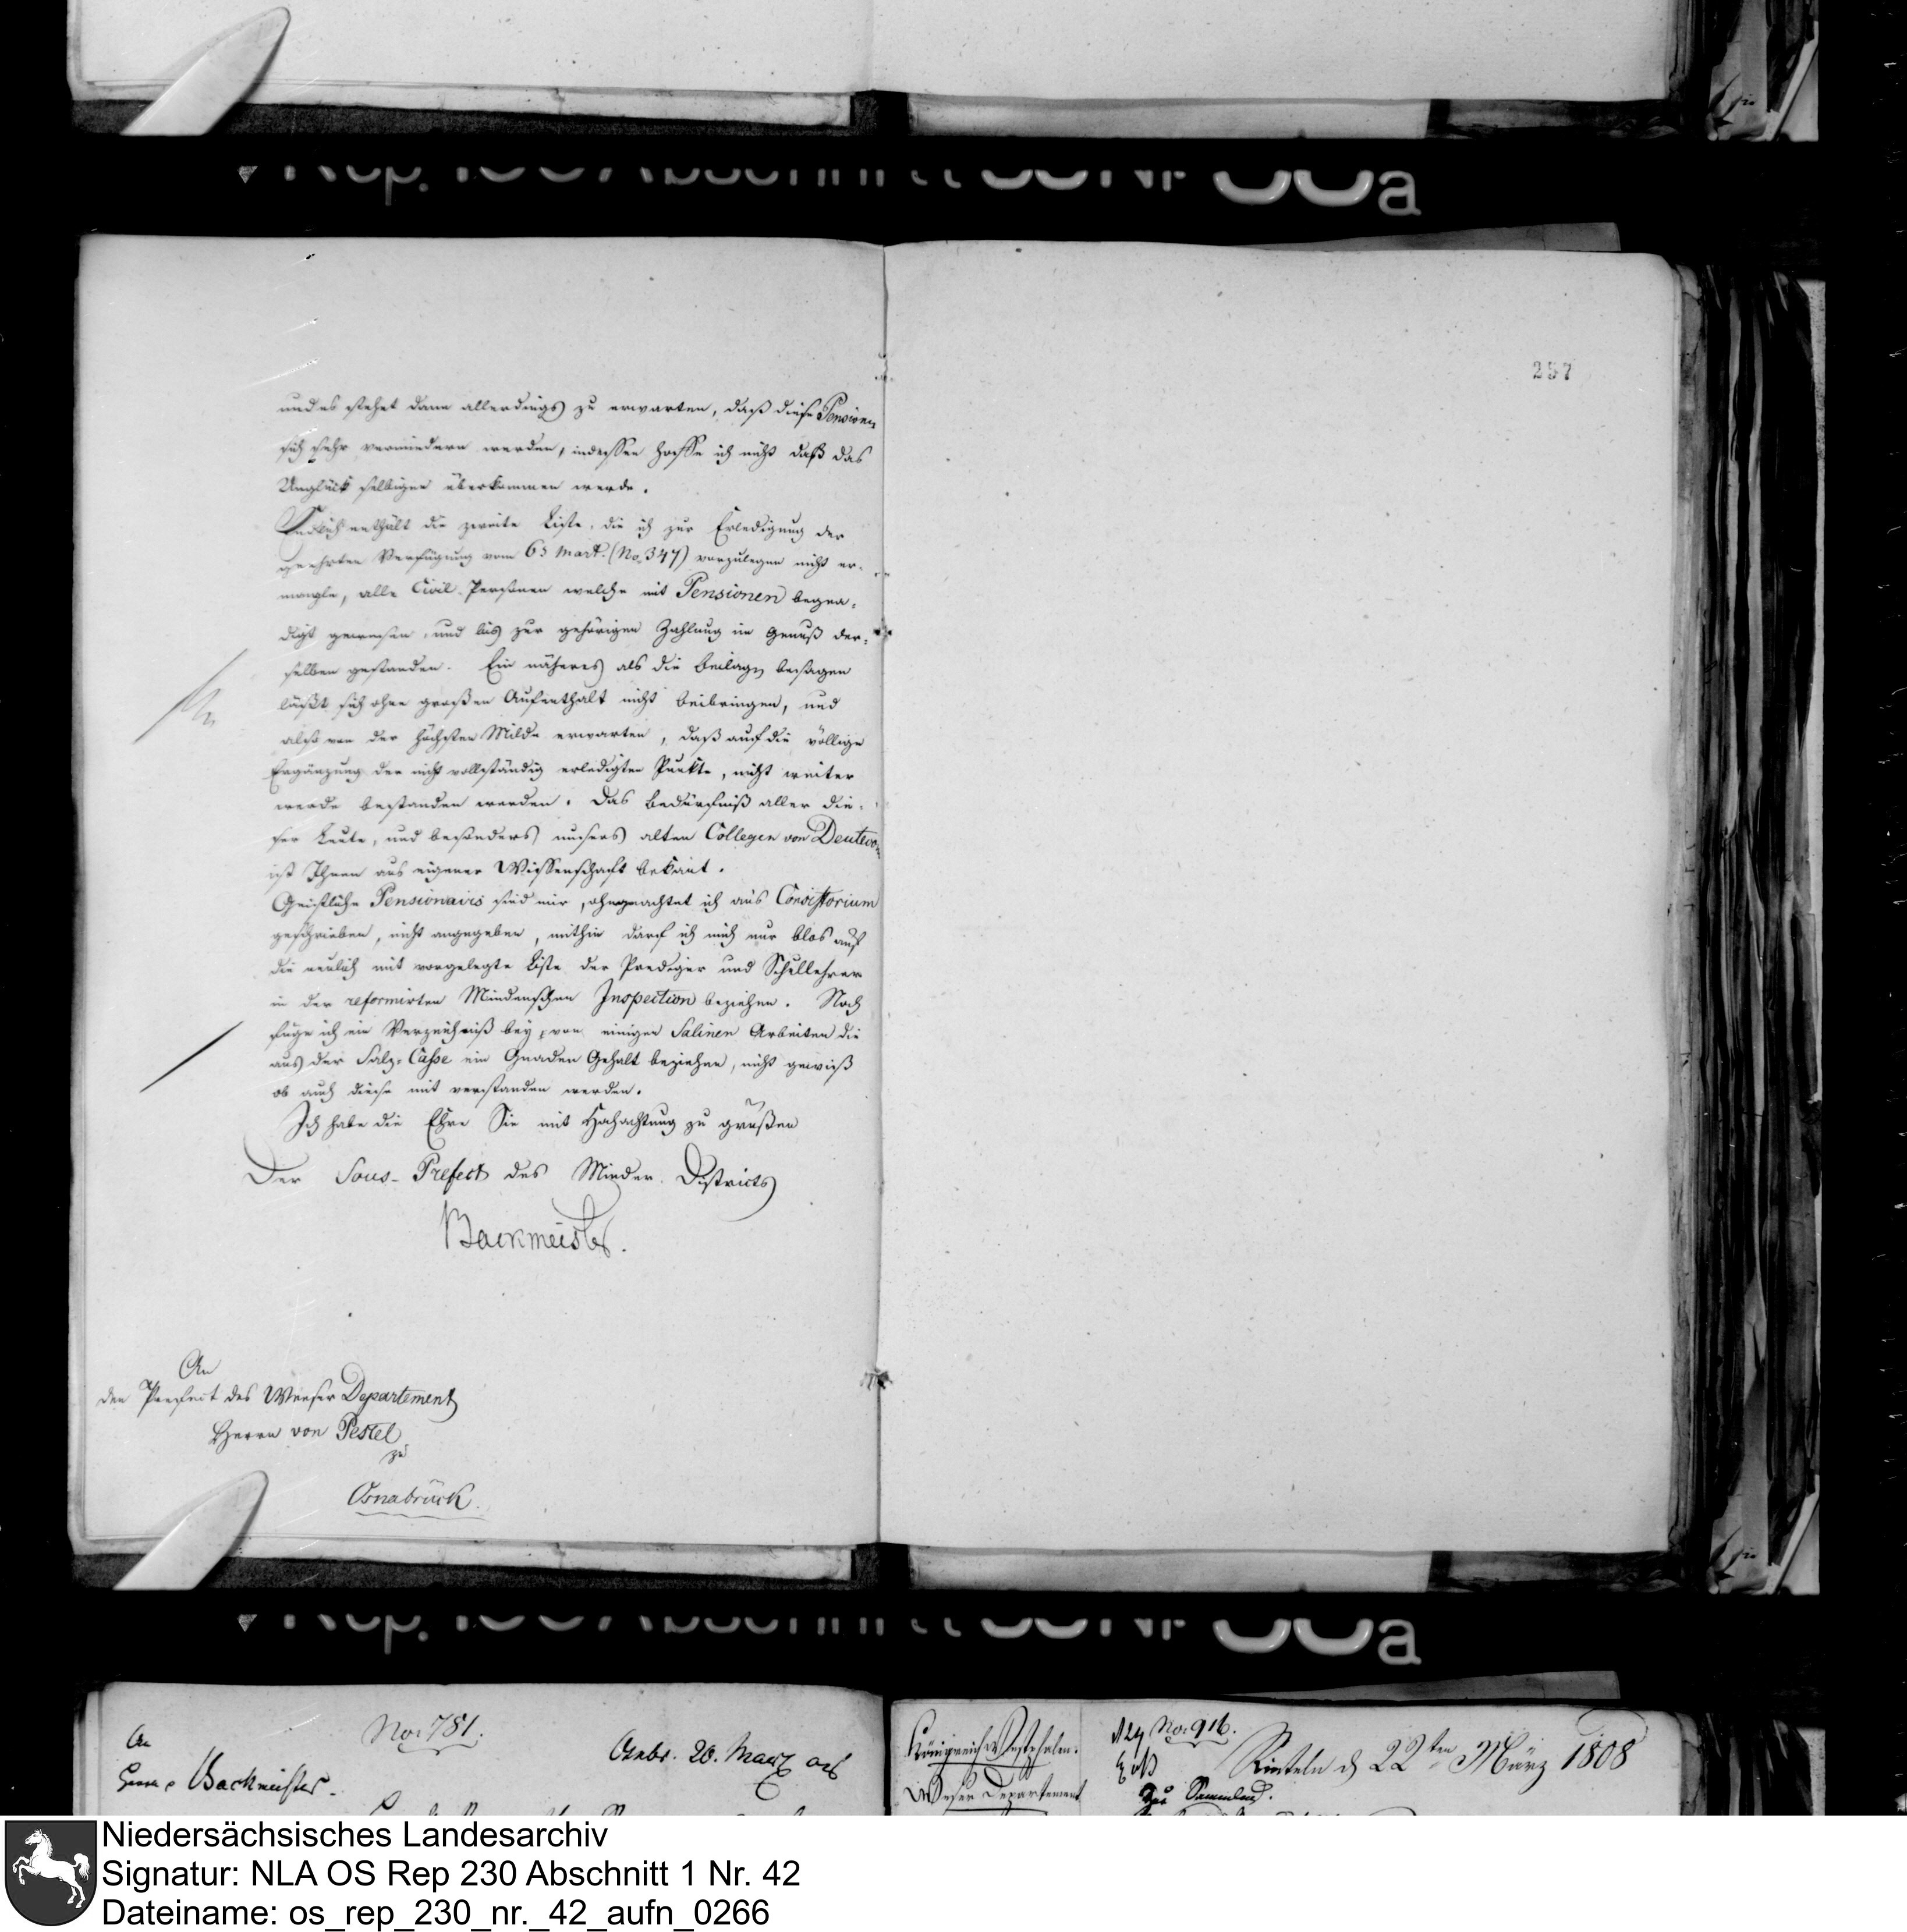 und es stehet dann allerdings zu erwarten, daß diese Pensionen
sich sehr vermindern werden, indessen hoffe ich nicht daß das
Unglück selbigen überkommen werde.
Endlich enthält die zweite Liste, die ich zur Erledigung der
geehrten Verfügung vom 6s Mart. (No. 347) vorzulegen nicht er-
mangle, alle Civil-Personen welche mit Pensionen begna-
digt gewesen, und bis zur gehörigen Zahlung im Genuß der-
selben gestanden. Ein näheres als die Beilagen besagen
läßt sich ohne großen Aufenthalt nicht beibringen, und
also von der höchsten Milde erwarten, daß auf die völlige
Ergänzung der nicht vollständig erledigten Punkte, nicht weiter
werde bestanden werden. Das Bedürfniß aller die-
ser Leute, und besonders unsers alten Collegen von Deutecom
ist Ihnen aus eigener Wissenschaft bekant.
Geistliche Pensionairs sind mir, ohngeachtet ich ans Consistorium
geschrieben, nicht angegeben, mithin darf ich mich nur blos auf
die neulich mit vorgelegte Liste der Prediger und Schullehrer
in der reformirten Mindenschen Inspection beziehen. Noch
füge ich ein Verzeichniß bey, von einigen Salinen Arbeiten die
aus der Salz-Casse ein Gnaden Gehalt beziehen, nicht gewiß
ob auch diese mit verstanden werden.
Ich habe die Ehre Sie mit Hochachtung zu grüßen
Der Sous-Prefect des Minder Districts
Backmeister.
An
den Praefect des Weser Departement
Herrn von Pestel
zu
Osnabrück.
257
An
Herrn Backmeister.
No. 781.
Osnbr. 26. Maerz 08
Königreich Westphalen.
Weser Departement
No. 916.
Rinteln d 22ten März 1808
Rep.
Abschnitt
Nr
a
Niedersächsisches Landesarchiv
Signatur: NLA OS Rep 230 Abschnitt 1 Nr. 42
Dateiname: os_rep_230_nr._42_aufn_0266